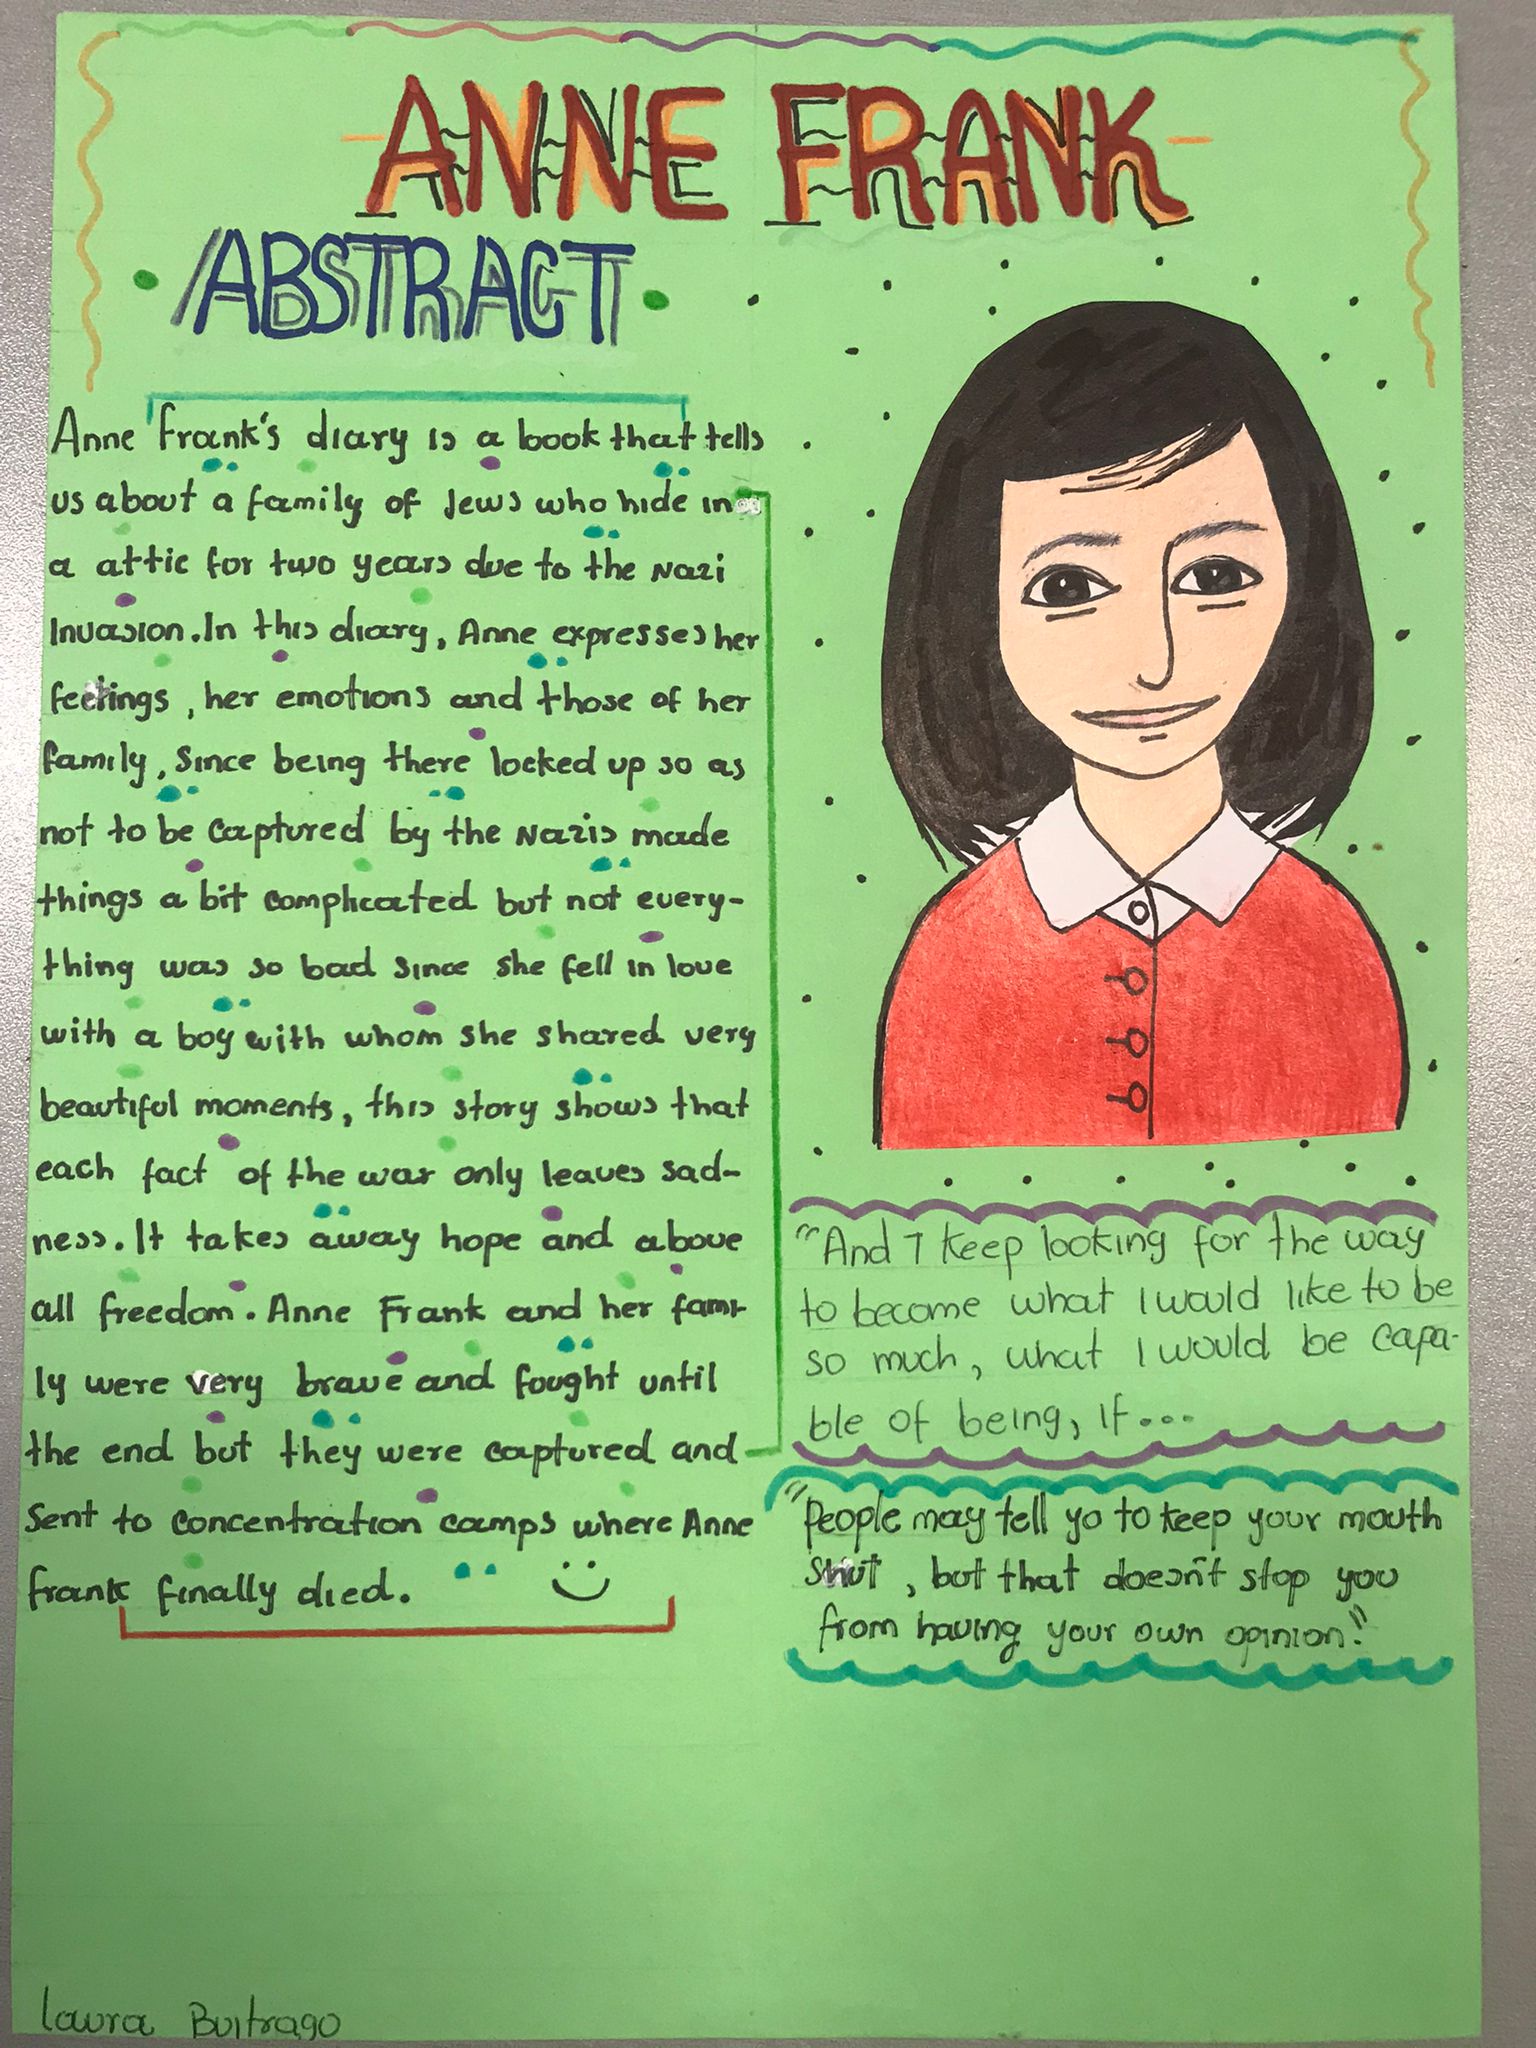 ANNE FRANK
ABSTRACT
Anne Frank's diary is a book that tells
us about a family of Jews who hide in
a attic for two years due to the Nazi
Invasion. In this diary, Anne expresses her
feelings, her emotions and those of her
family, since being there locked up so as
not to be captured by the Nazis made
things a bit complicated but not every-
thing was so bad since she fell in love
with a boy with whom she shared very
beautiful moments, this story shows that
each fact of the war only leaves sad-
ness. It takes away hope and above
all freedom. Anne Frank and her fami-
ly were very brave and fought until
the end but they were captured and
sent to concentration camps where Anne
Frank finally died.
"And I keep looking for the way
to become what I would like to be
so much, what I would be capa-
ble of being, if...
"People may tell yo to keep your mouth
shut, but that doesn't stop you
from having your own opinion."
Laura Buitrago